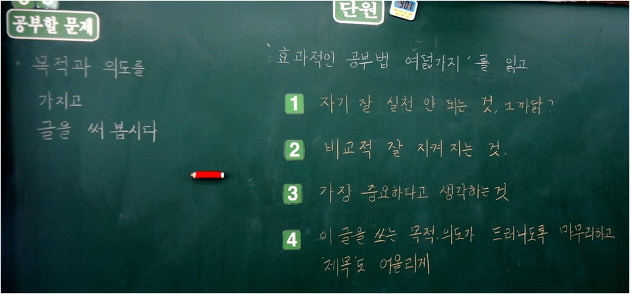 공부할 문제
· 목적과 의도를
가지고
글을 써 봅시다
단원
'효과적인 공부법 여덟가지'를 읽고
1 자기 잘 실천 안 되는 것, 그까닭?
2 비교적 잘 지켜지는 것.
3 가장 중요하다고 생각하는것
4 이 글을 쓰는 목적·의도가 드러나도록 마무리하고
'제목'도 어울리게